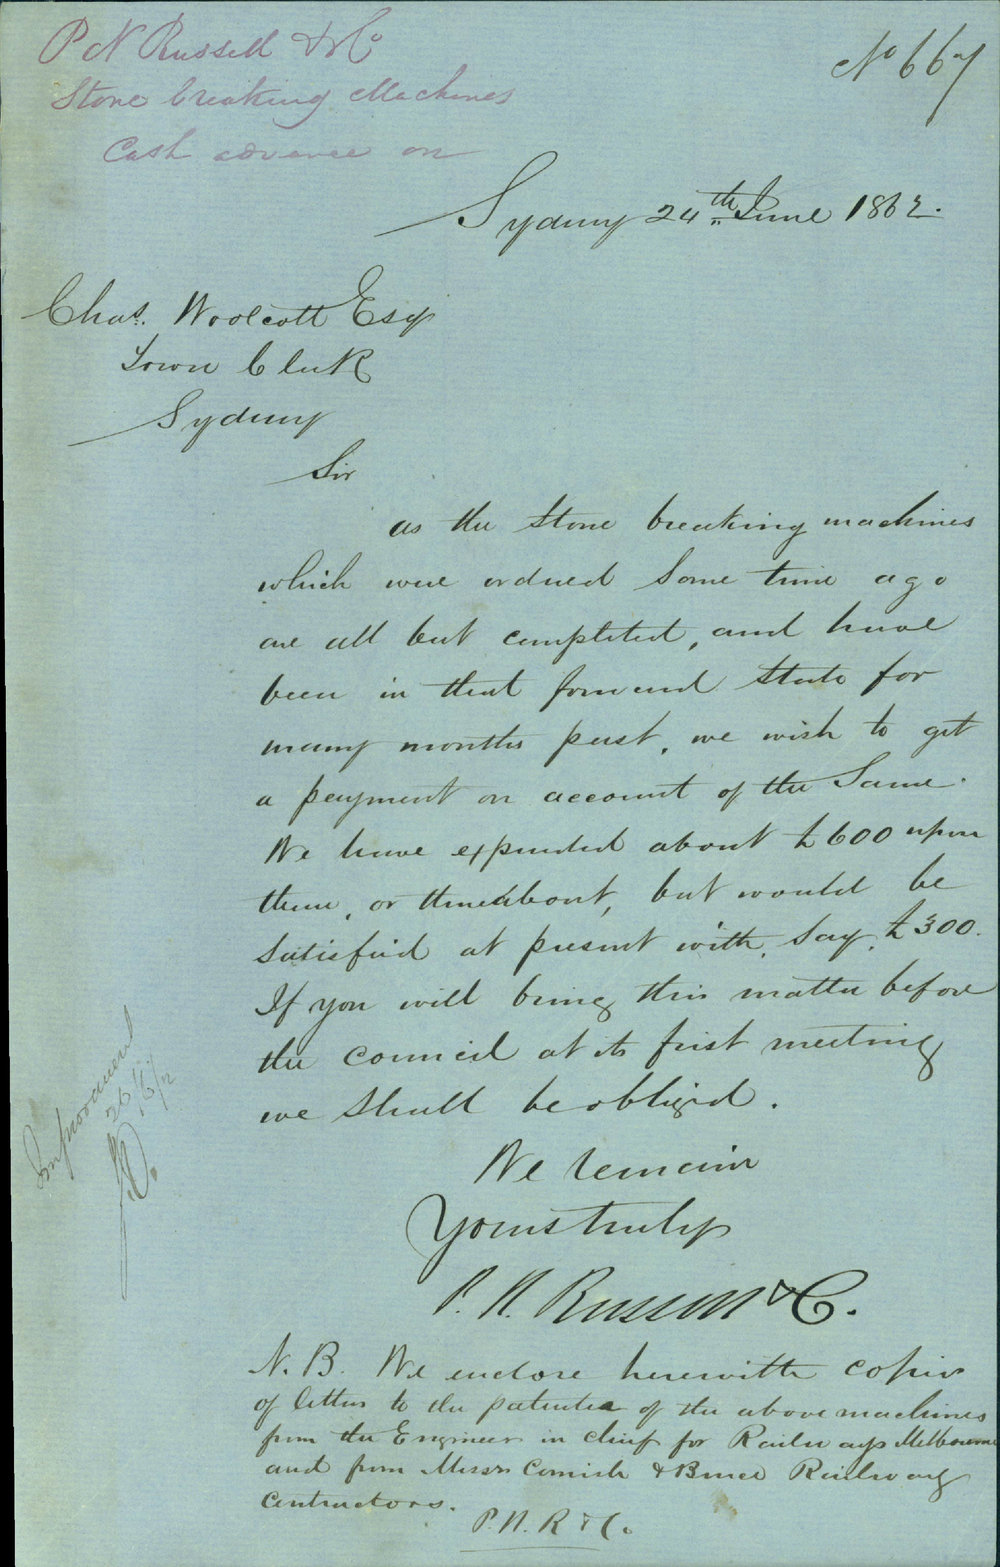 P N Russell & Co
Stone breaking Machines
Cash advance on
No 667
Sydney 24th June 1862.
Chas. Woolcott Esq
Town Clerk
Sydney
Sir
as the Stone breaking machines
which were ordered some time ago
are all but completed, and have
been in that forward state for
many months past, we wish to get
a payment on account of the same.
We have expended about £600 upon
them, or thereabout, but would be
satisfied at present with, say, £300.
If you will bring this matter before
the council at its first meeting
we shall be obliged.
We remain
Yours truly
P. N. Russell & Co.
N.B. We enclose herewith copies
of letters to the patentee of the above machines
from the Engineer in chief for Railways Melbourne
and from Messrs Cornish & Bruce Railway
Contractors.
P. N. R & Co.
26/6/62